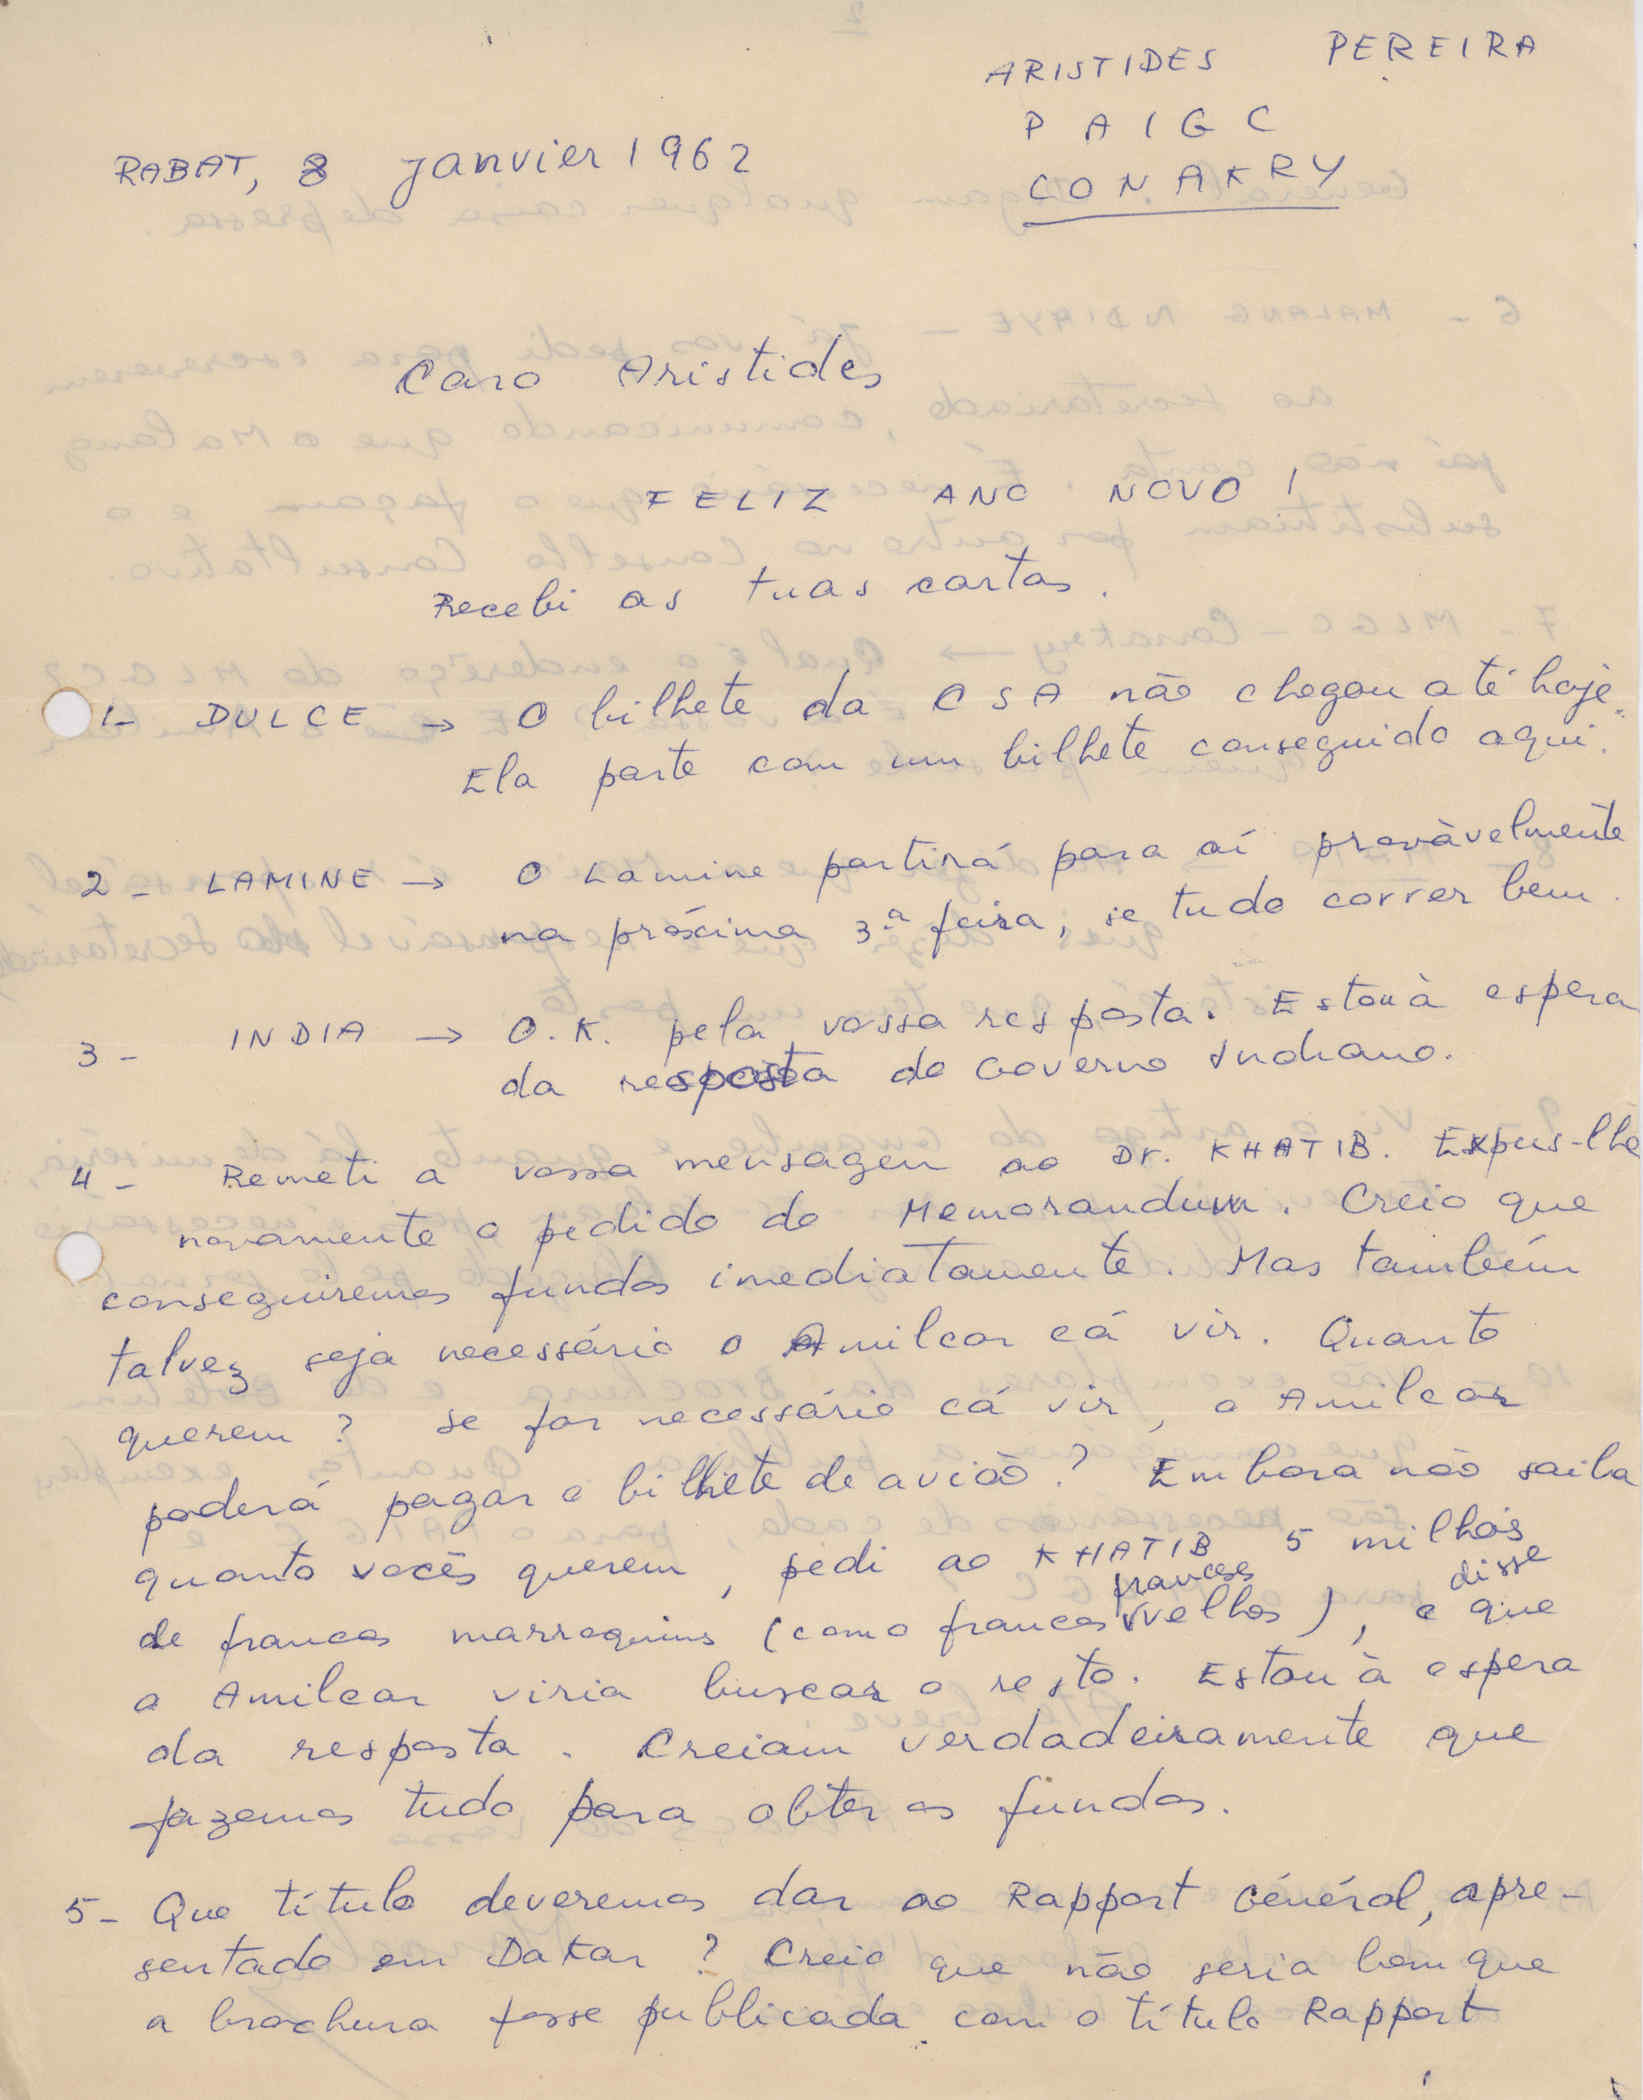 ARISTIDES PEREIRA
PAIGC
CONAKRY
RABAT, 8 janvier 1962
Caro Aristides
FELIZ ANO NOVO!
Recebi as tuas cartas.
1- DULCE → O bilhete da CSA não chegou até hoje.
Ela parte com um bilhete conseguido aqui.
2- LAMINE → O Lamine partirá para aí provàvelmente
na próxima 3ª feira, se tudo correr bem.
3- INDIA → O.K. pela vossa resposta. Estou à espera
da resposta do Governo Indiano.
4- Remeti a vossa mensagem ao Dr. KHATIB. Expus-lhe
novamente o pedido do Memorandum. Creio que
conseguiremos fundos imediatamente. Mas também
talvez seja necessário o Amilcar cá vir. Quanto
querem? Se for necessário cá vir, o Amilcar
poderá pagar o bilhete de avião? Embora não saiba
quanto vocês querem, pedi ao KHATIB 5 milhões
de francos marroquinos (como francos franceses velhos), e disse que
o Amilcar viria buscar o resto. Estou à espera
da resposta. Creiam verdadeiramente que
fazemos tudo para obter os fundos.
5- Que título deveremos dar ao Rapport Général, apre-
sentado em Dakar? Creio que não seria bom que
a brochura fosse publicada com o título Rapport